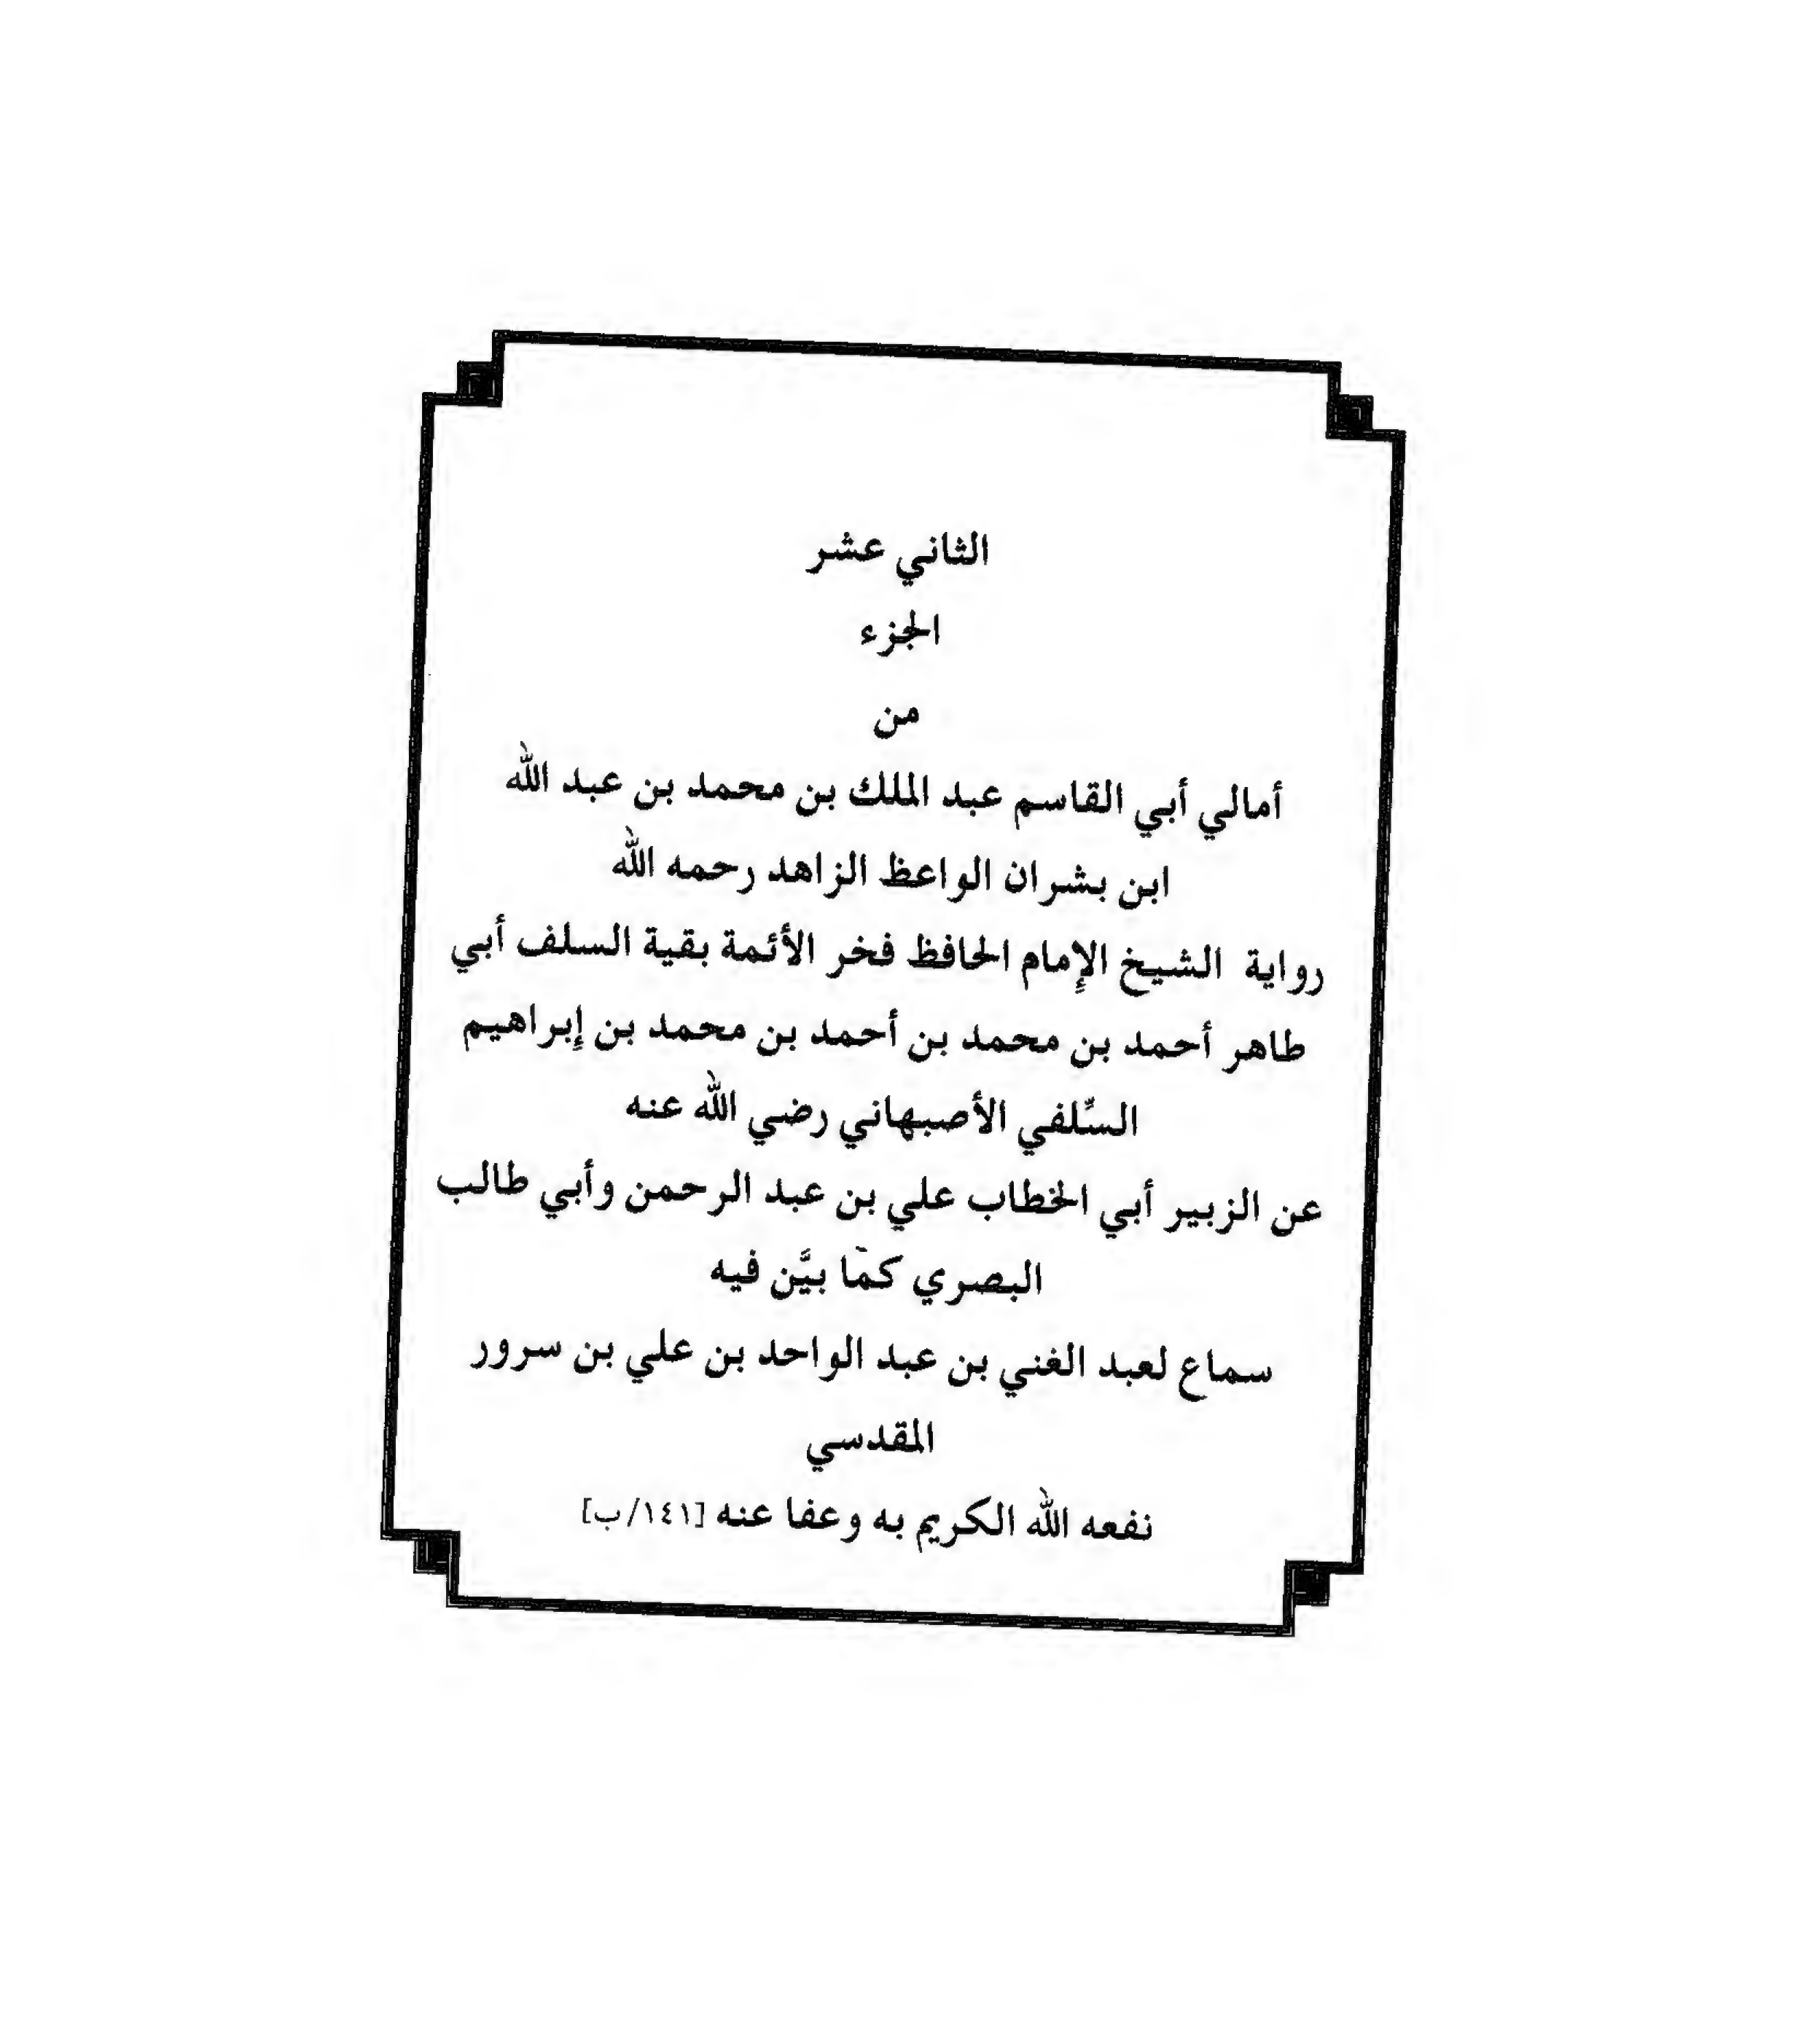 الثاني عشر
الجزء
من
أمالي أبي القاسم عبد الملك بن محمد بن عبد الله
ابن بشران الواعظ الزاهد رحمه الله
رواية الشيخ الإمام الحافظ فخر الأئمة بقية السلف أبي
طاهر أحمد بن محمد بن أحمد بن محمد بن إبراهيم
السِّلفي الأصبهاني رضي الله عنه
عن الزبير أبي الخطاب علي بن عبد الرحمن وأبي طالب
البصري كمَا بيَّن فيه
سماع لعبد الغني بن عبد الواحد بن علي بن سرور
المقدسي
نفعه الله الكريم به وعفا عنه [١٤١/ب]